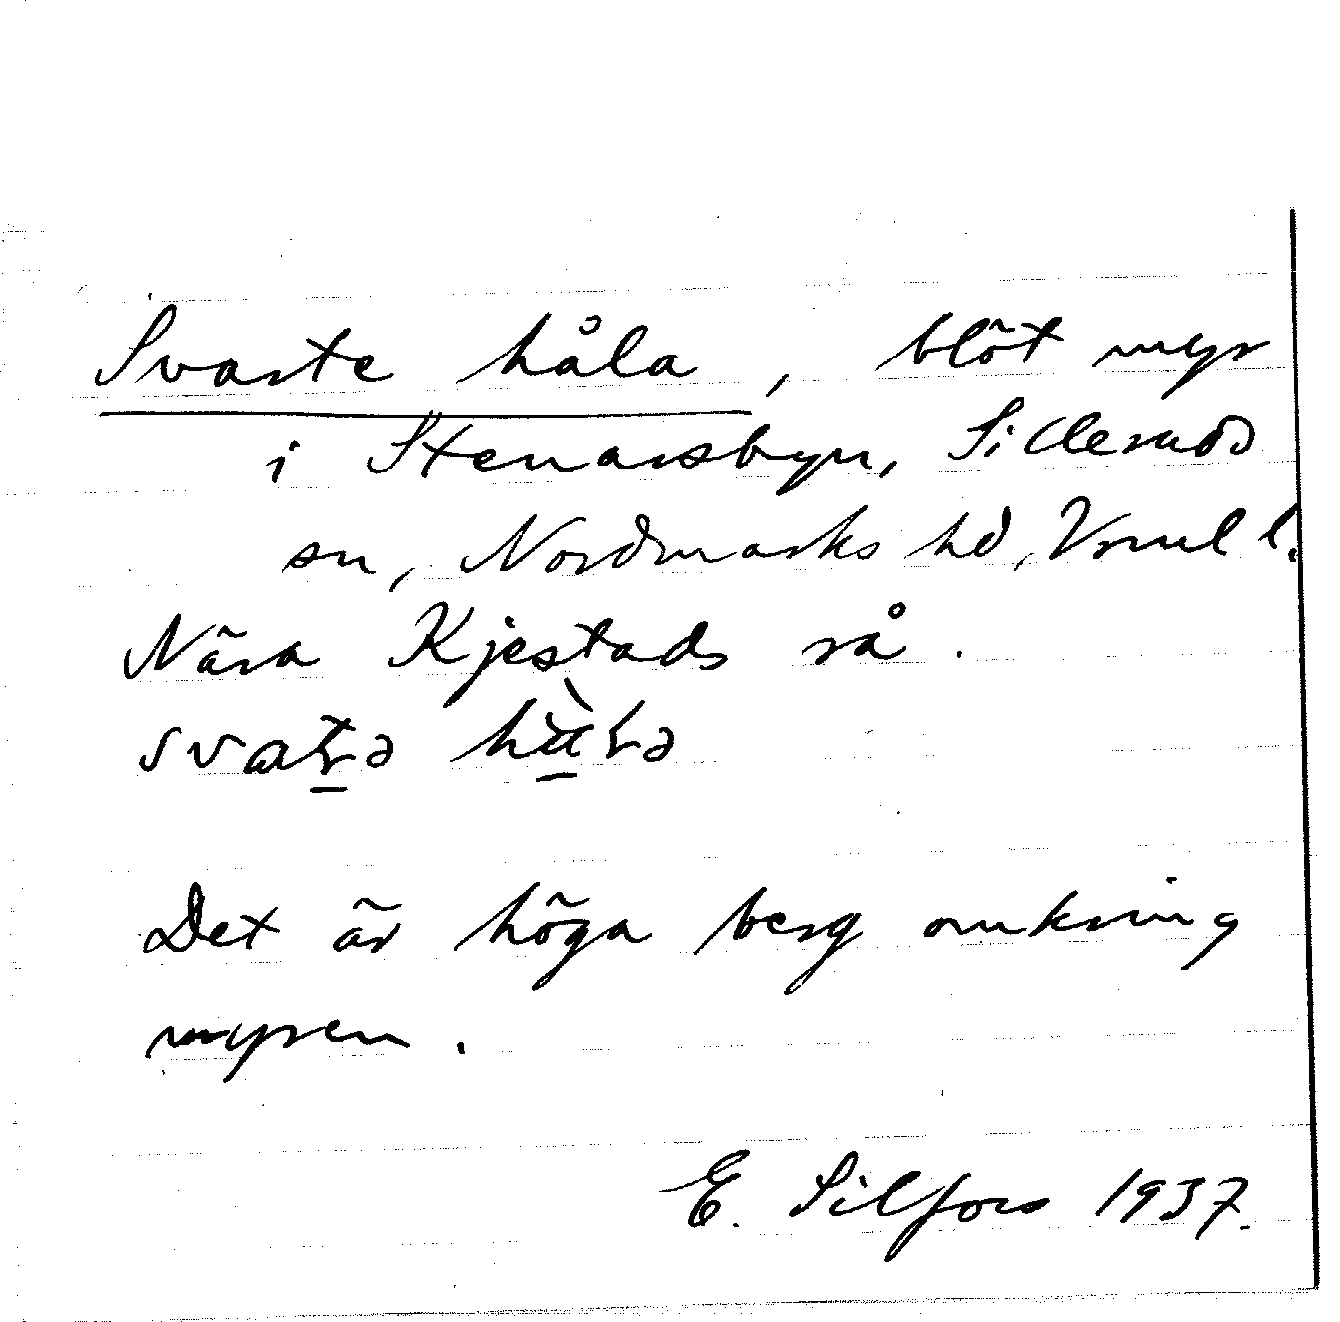 Svarte håla, blöt myr
i Stenarsbyn, Sillerud
sn, Nordmarks hd, Vrml l.
Nära Kjestads rå.
Det är höga berg omkring
myren.
E. Silfors 1937.